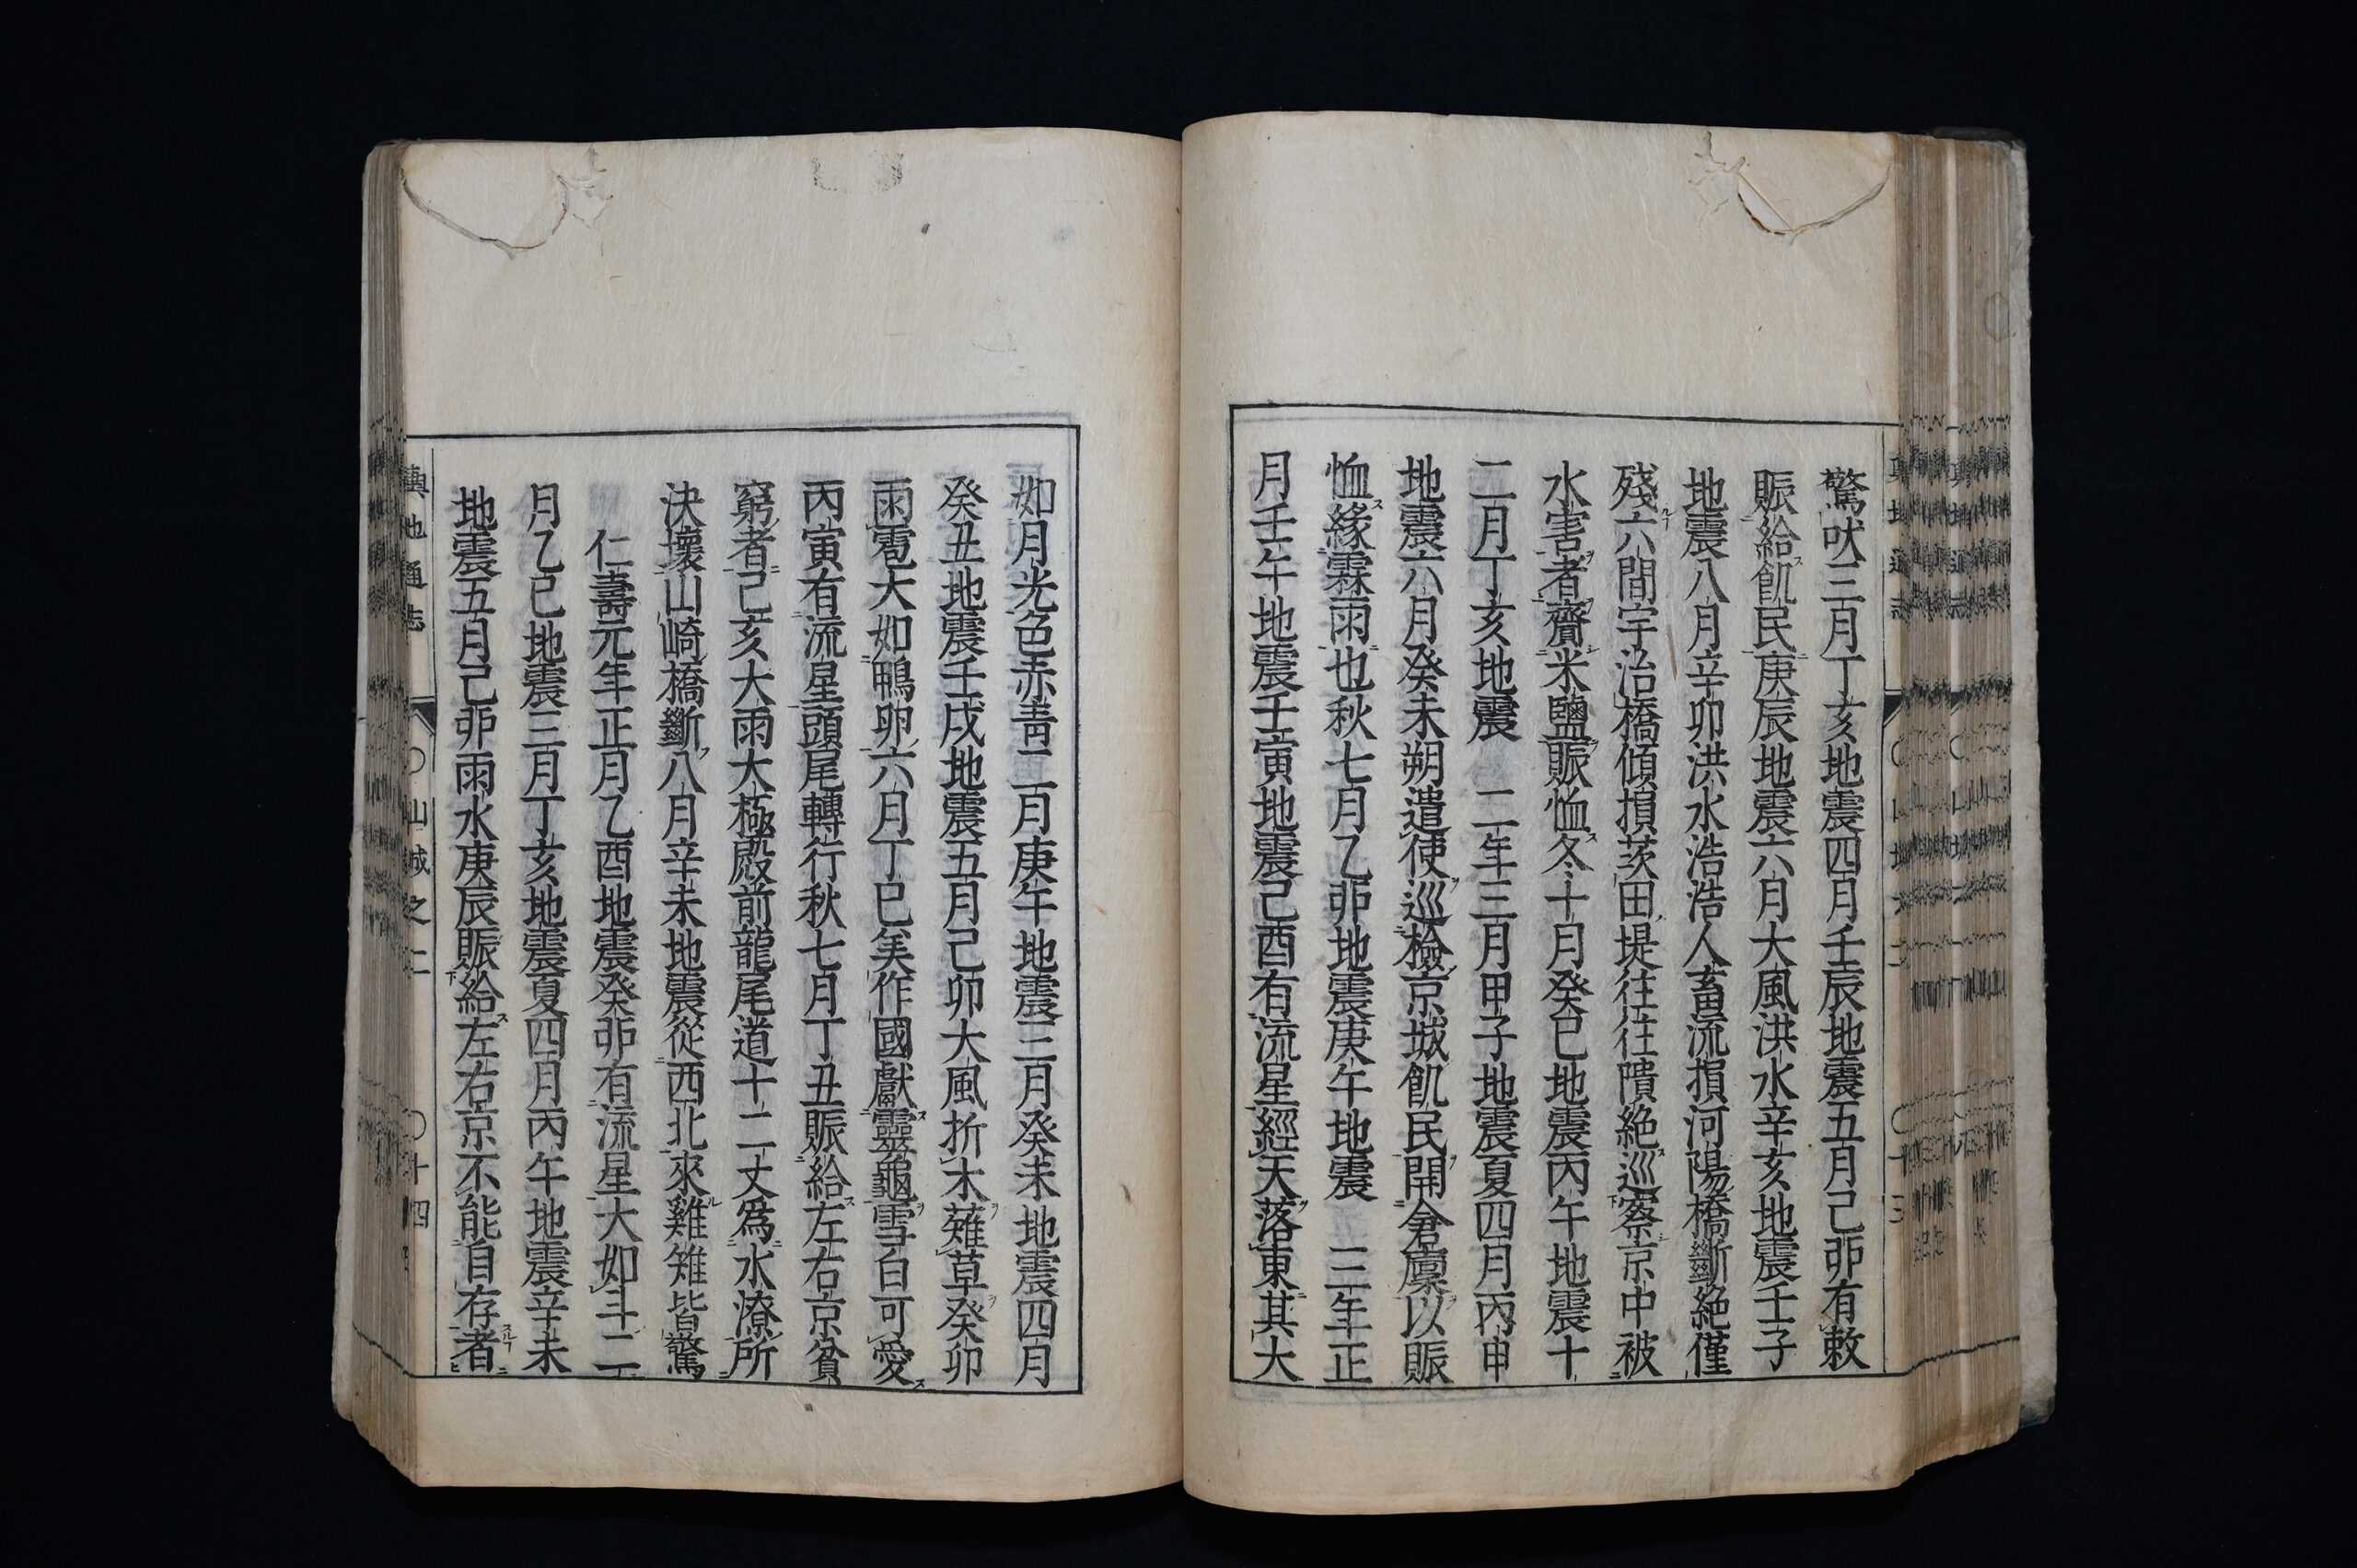 驚吠三月丁亥地震四月壬辰地震五月己夘有敕
賑給飢民庚辰地震六月大風洪水辛亥地震壬子
地震八月辛卯洪水浩浩人畜流損河陽橋斷絶僅
殘六間宇治橋傾損茨田堤往往隤絶巡察京中被
水害者齎米鹽賑恤冬十月癸巳地震丙午地震十
二月丁亥地震　二年三月甲子地震夏四月丙申
地震六月癸未朔遣使巡檢京城飢民開倉廩以賑
恤緣霖雨也秋七月乙夘地震庚午地震　三年正
月壬午地震壬寅地震己酉有流星經天落東其大
如月光色赤青二月庚午地震三月癸未地震四月
癸丑地震壬戌地震五月己卯大風折木薙草癸卯
雨雹大如鴨卵六月丁巳美作國獻靈龜雪白可愛
丙寅有流星頭尾轉行秋七月丁丑賑給左右京貧
窮者己亥大雨大極殿前龍尾道十二丈爲水潦所
決壞山崎橋斷八月辛未地震從西北來雞雉皆驚
仁壽元年正月乙酉地震癸夘有流星大如斗二
月乙巳地震三月丁亥地震夏四月丙午地震辛未
地震五月己夘雨水庚辰賑給左右京不能自存者
輿地通志　〇山城之二　〇十四